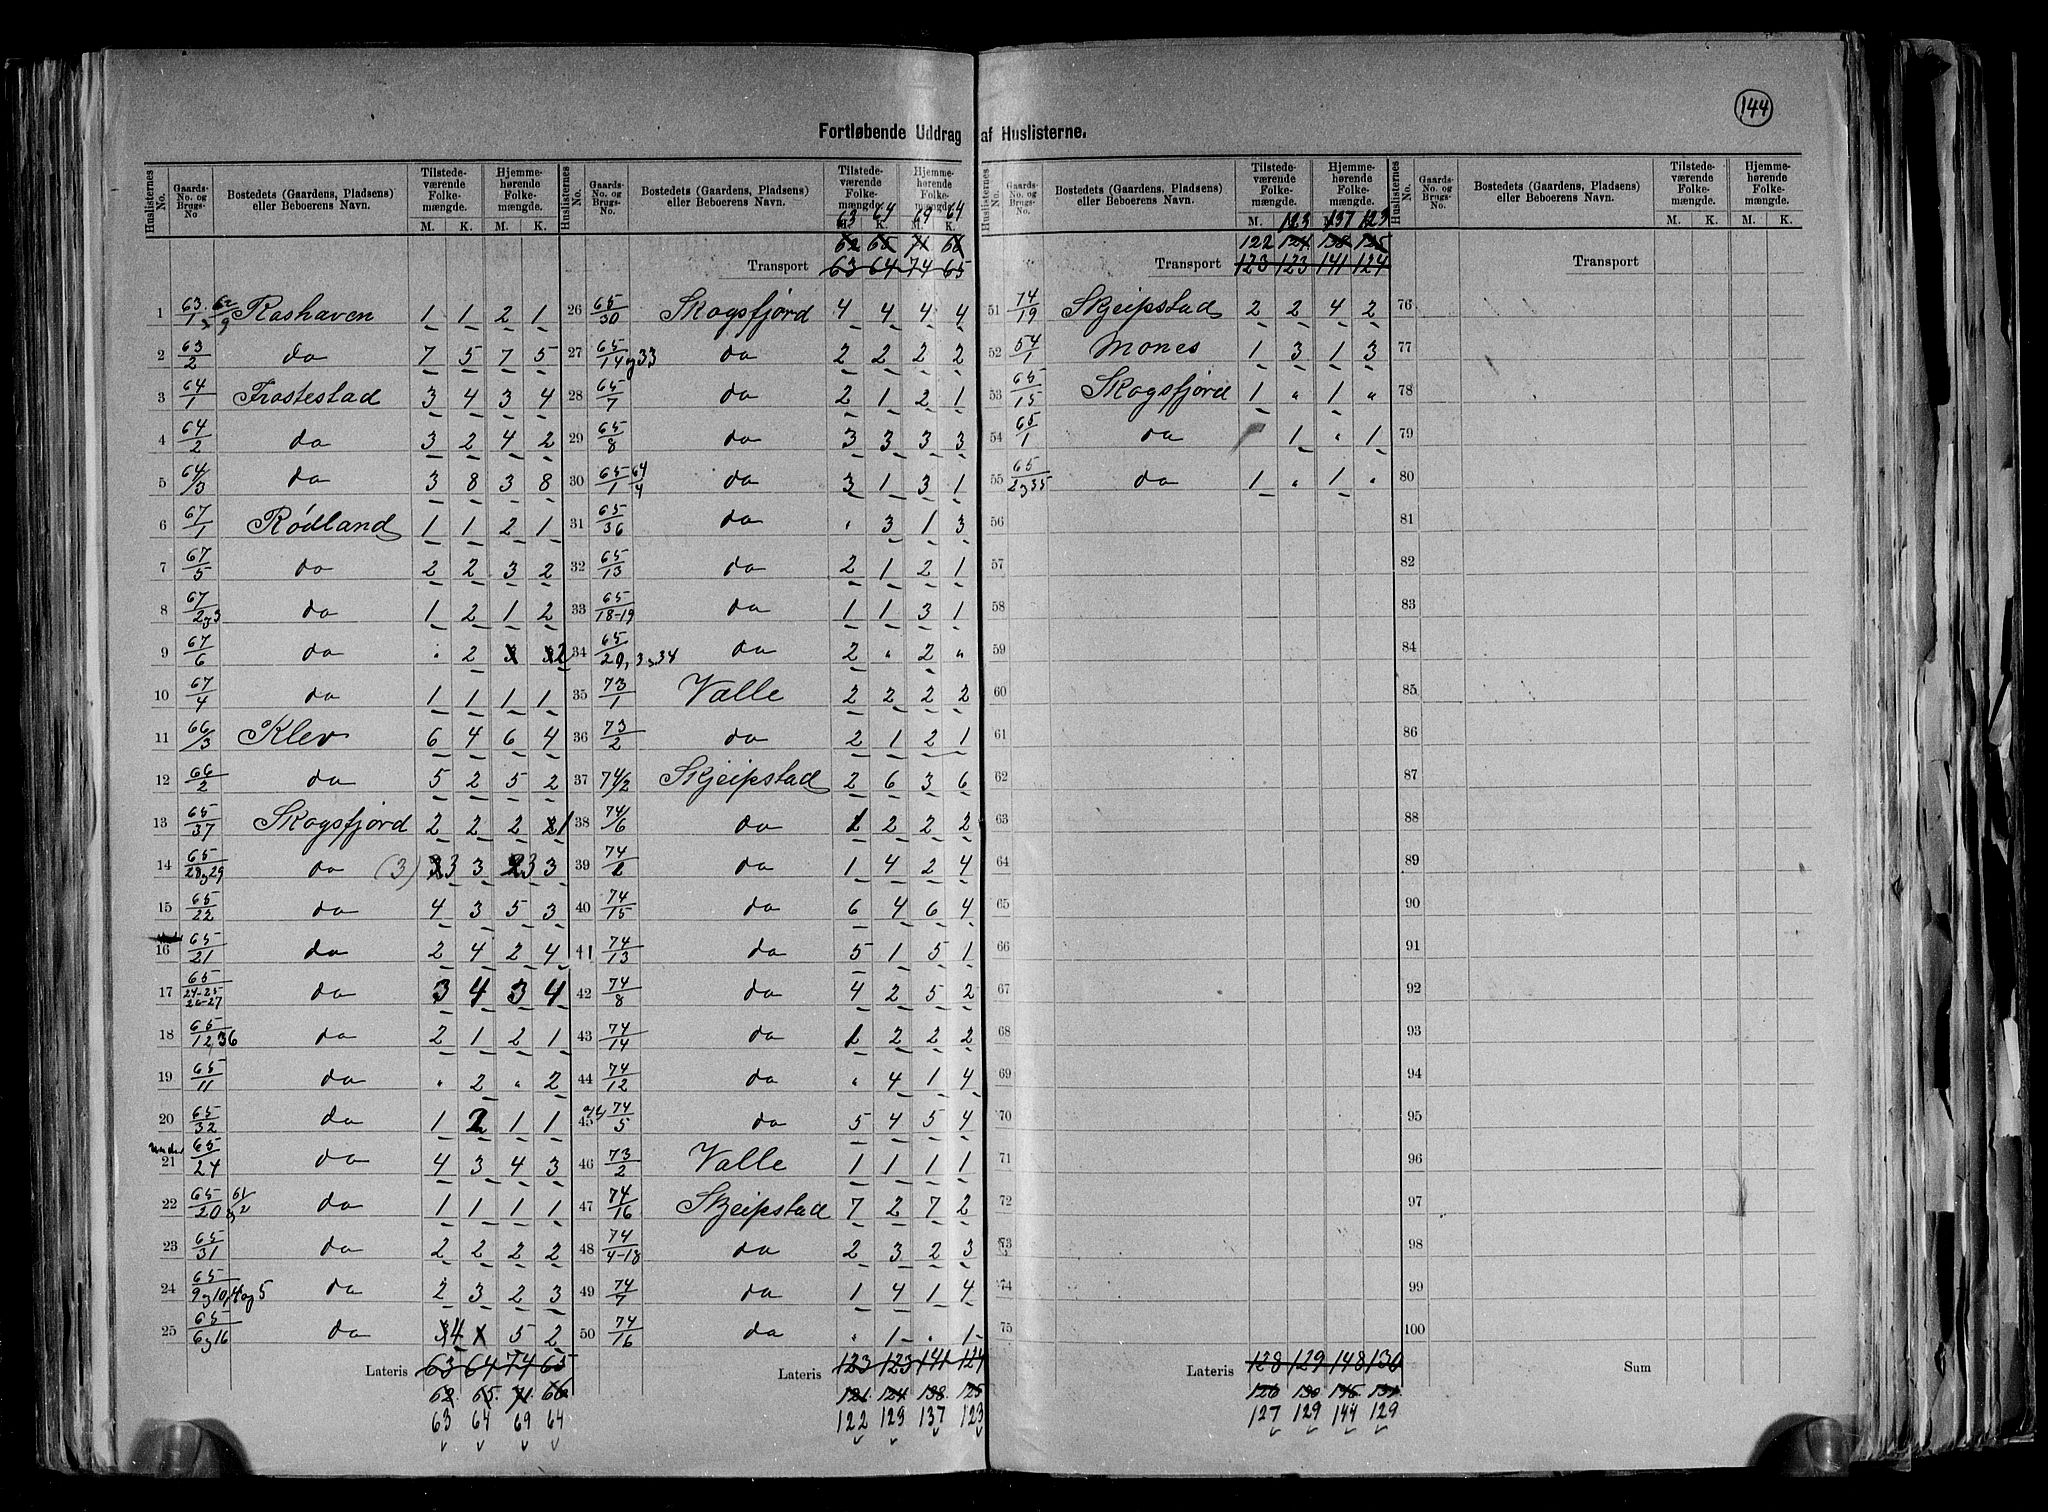 144
Fortløbende Uddrag af Huslisterne.
Huslisternes No. Gaards-No. og Brugs-No. Bostedets (Gaardens, Pladsens) eller Beboerens Navn. Tilstedeværende Folkemængde. M. K. Hjemmehørende Folkemængde. M. K.
1 63/1 62/9 Rashaven 1 1 2 1
2 63/2 do 7 5 7 5
3 64/1 Frostestad 3 4 3 4
4 64/2 do 3 2 4 2
5 64/3 do 3 8 3 8
6 67/1 Rødland 1 1 2 1
7 67/5 do 2 2 3 2
8 67/2 og 3 do 1 2 1 2
9 67/6 do " 2 2
10 67/4 do 1 1 1 1
11 66/3 Klev 6 4 6 4
12 66/2 do 5 2 5 2
13 65/37 Skogsfjord 2 2 2 1
14 65/28 og 29 do (3) 3 3 3 3
15 65/22 do 4 3 5 3
16 65/21 do 2 4 2 4
17 65/24-25 26-27 do 3 4 3 4
18 65/12, 36 do 2 1 2 1
19 65/11 do " 2 " 2
20 65/32 do 1 2 1 1
21 65/24 do 4 3 4 3
22 65/20 og 61/2 do 1 1 1 1
23 65/31 do 2 2 2 2
24 65/9 og 10, 4 og 5 do 2 3 2 3
25 65/6 og 16 do 4 5 2
Lateris 63 64 74 65
62 65 71 66
63 64 69 64
Huslisternes No. Gaards-No. og Brugs-No. Bostedets (Gaardens, Pladsens) eller Beboerens Navn. Tilstedeværende Folkemængde. M. K. Hjemmehørende Folkemængde. M. K.
63 64 69 64
62 65 71 66
Transport 63 64 74 65
26 65/30 Skogsfjord 4 4 4 4
27 65/14 og 33 do 2 2 2 2
28 65/7 do 2 1 2 1
29 65/8 do 3 3 3 3
30 65/1 64/4 do 3 1 3 1
31 65/36 do " 3 1 3
32 65/13 do 2 1 2 1
33 65/18-19 do 1 1 3 1
34 65/20, 3 og 34 do 2 " 2 "
35 73/1 Valle 2 2 2 2
36 73/2 do 2 1 2 1
37 74/2 Skjeipstad 2 6 3 6
38 74/6 do 1 2 2 2
39 74/1 do 1 4 2 4
40 74/15 do 6 4 6 4
41 74/13 do 5 1 5 1
42 74/8 do 4 2 5 2
43 74/14 do 1 2 2 2
44 74/12 do " 4 1 4
45 74/5 do 5 4 5 4
46 73/2 Valle 1 1 1 1
47 74/16 Skjeipstad 7 2 7 2
48 74/4-18 do 2 3 2 3
49 74/7 do 1 4 1 4
50 74/16 do " 1 " 1
Lateris 123 123 141 124
121 124 138 125
122 123 137 123
Huslisternes No. Gaards-No. og Brugs-No. Bostedets (Gaardens, Pladsens) eller Beboerens Navn. Tilstedeværende Folkemængde. M. Hjemmehørende Folkemængde.
123 137 123
122 124 138 125
Transport 123 123 141 124
51 74/19 Skjeipstad 2 2 4 2
52 54/1 Mones 1 3 1 3
53 65/15 Skogsfjord 1 " 1 "
54 65/1 do 1 " 1
55 65/2 og 35 do 1 " 1 "
56
57
58
59
60
61
62
63
64
65
66
67
68
69
70
71
72
73
74
75
Lateris 128 129 148 130
126 130 145 131
127 129 144 129
Huslisternes No. Gaards-No. og Brugs-No. Bostedets (Gaardens, Pladsens) eller Beboerens Navn. Tilstedeværende Folkemængde. M. K. Hjemmehørende Folkemængde. M. K.
Transport
76
77
78
79
80
81
82
83
84
85
86
87
88
89
90
91
92
93
94
95
96
97
98
99
100
Sum